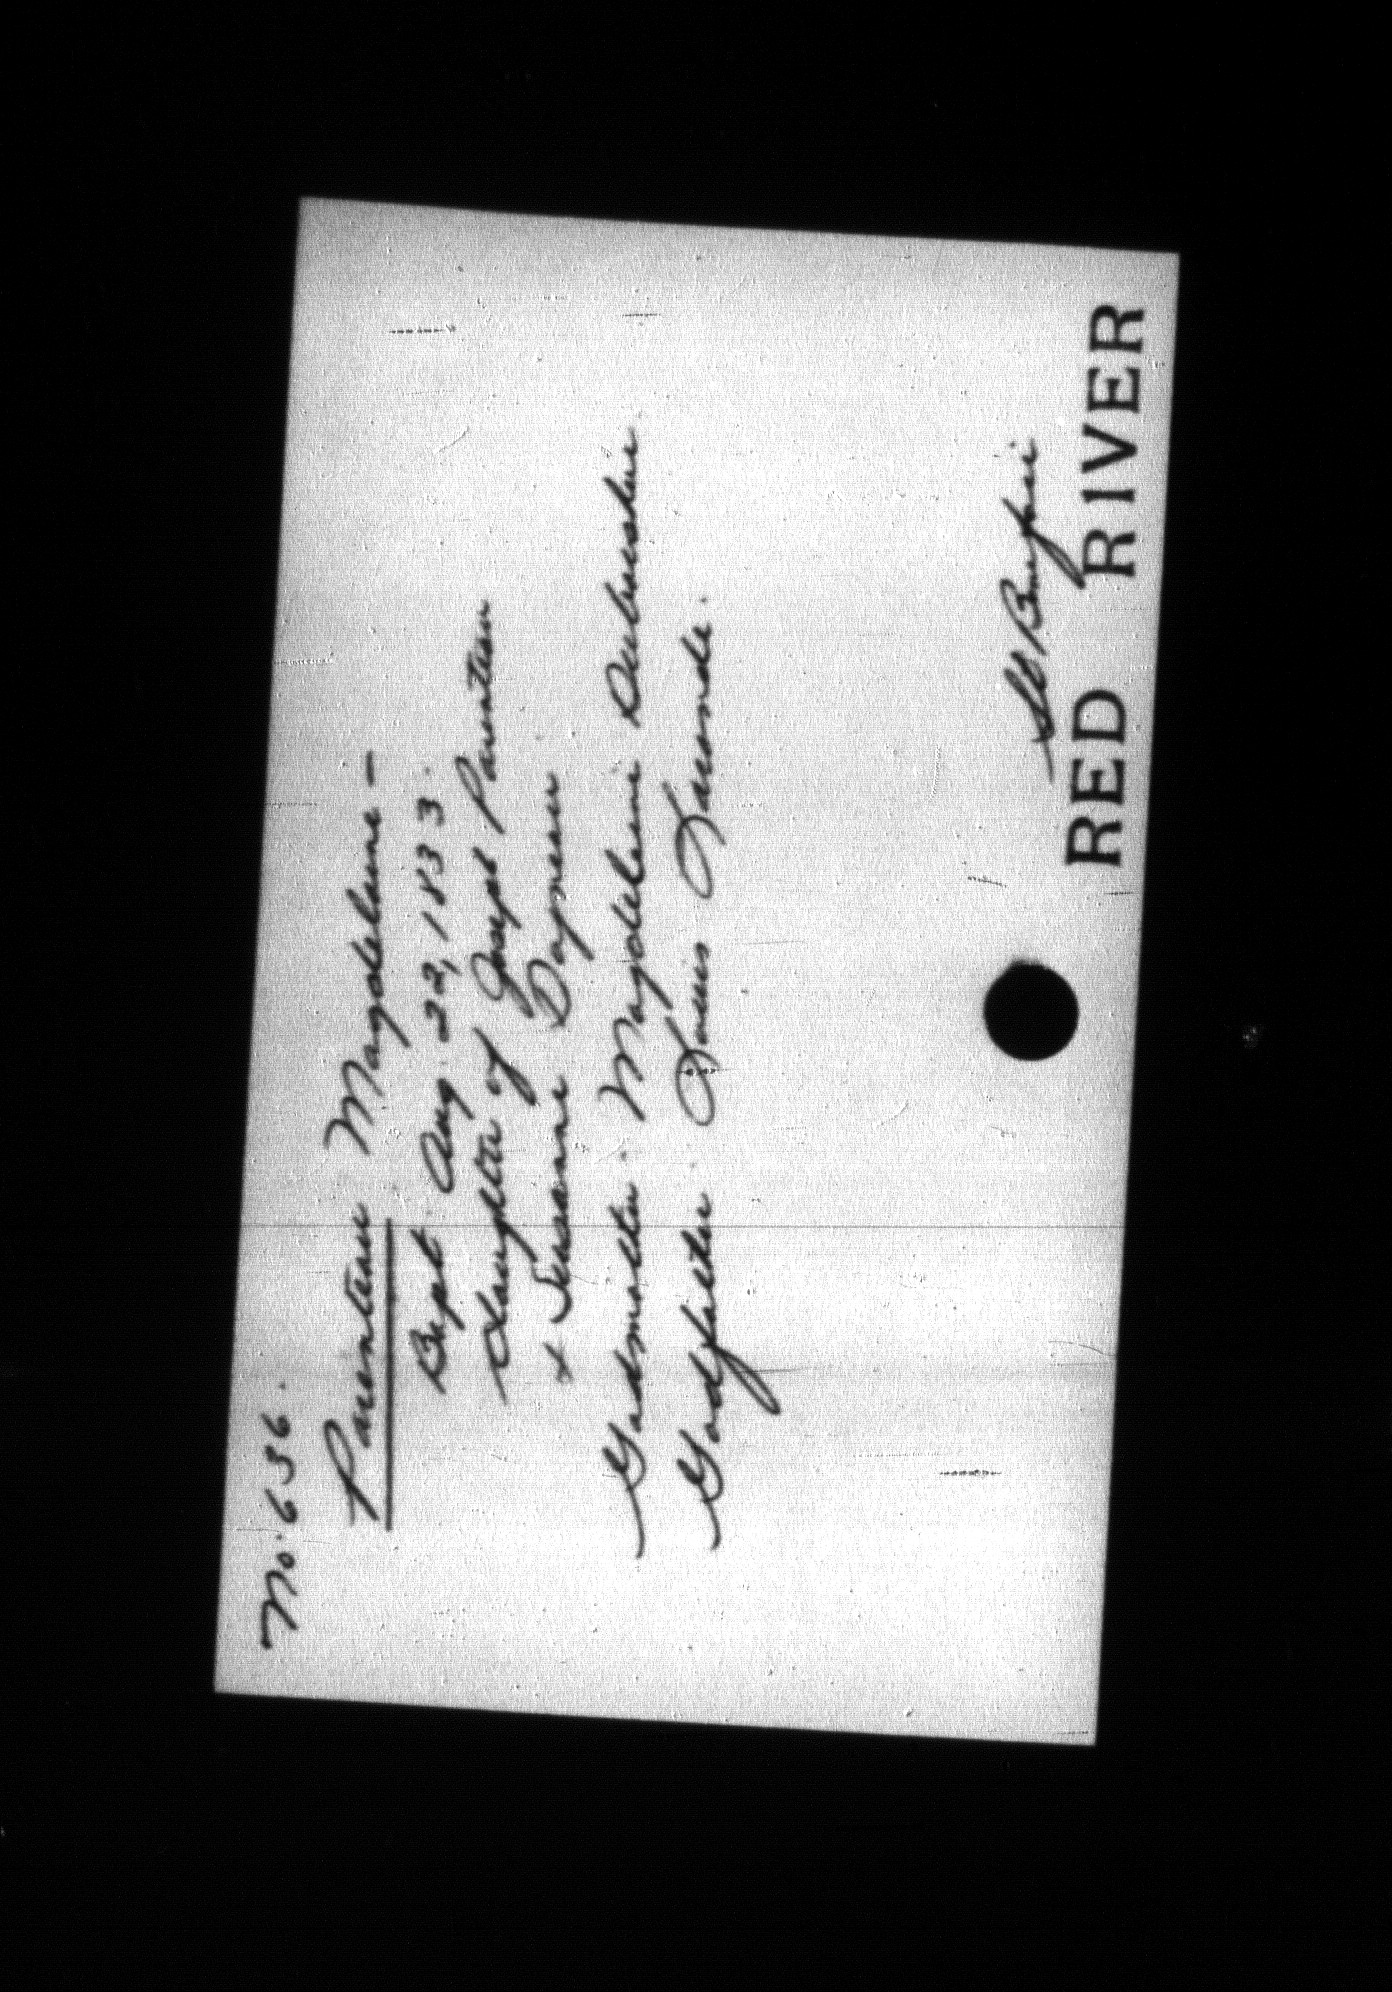 No. 636.
Parenteau Magdelaine -
Bapt. Aug. 22, 1833.
Daughter of Joseph Parenteau
+ Susanne Dagneau
Godmother. Magdelaine
Godfather. Louis Lacombe.
St Boniface
RED RIVER